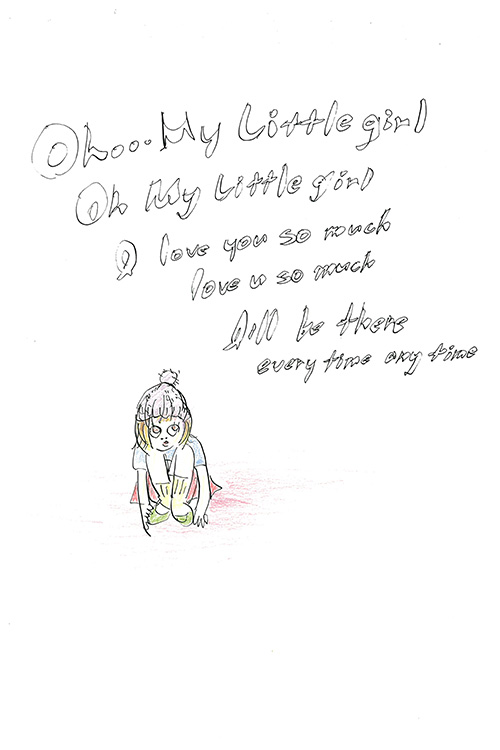 Ohoo.. My Little girl
Oh My Little girl
I love you so much
love u so much
I'll be there
every time any time